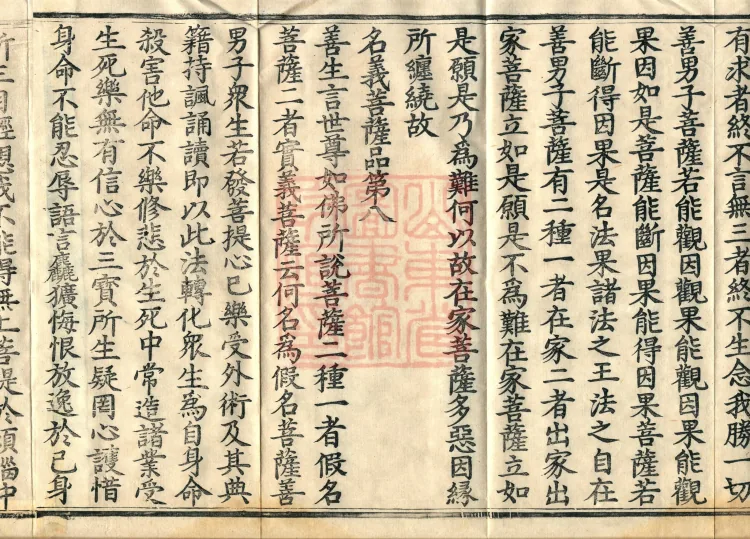 有求者終不言無三者終不生念我勝一切
善男子菩薩若能觀因觀果能觀因果能觀
果因如是菩薩能斷因果能得因果菩薩若
能斷得因果是名法果諸法之王法之自在
善男子菩薩有二種一者在家二者出家出
家菩薩立如是願是不為難在家菩薩立如
是願是乃為難何以故在家菩薩多惡因緣
所纏繞故
名義菩薩品第八
善生言世尊如佛所說菩薩二種一者假名
菩薩二者實義菩薩云何名為假名菩薩善
男子衆生若發菩提心已樂受外術及其典
籍持諷誦讀即以此法轉化衆生為自身命
殺害他命不樂修悲於生死中常造諸業受
生死樂無有信心於三寶所生疑罔心護惜
身命不能忍辱語言麤獷悔恨放逸於己身
所生自輕想我不能得無上菩提於煩惱中